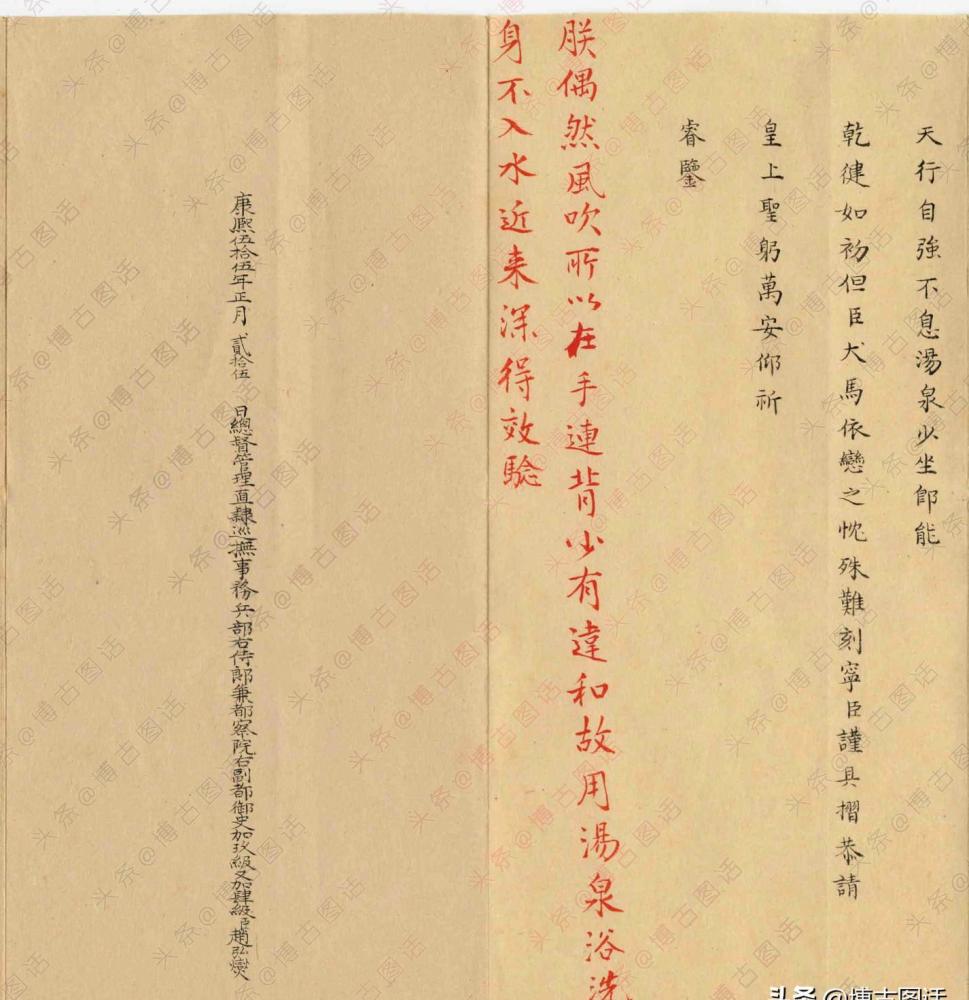 天行自強不息湯泉少坐即能
乾健如初但臣犬馬依戀之忱殊難刻寧臣謹具摺恭請
皇上聖躬萬安仰祈
睿鑒
朕偶然風吹所以在手連背少有違和故用湯泉浴洗
身不入水近来深得效驗
康熙伍拾伍年正月貳拾伍日總督管理直隸巡撫事務兵部右侍郎兼都察院右副都御史加玖級又加肆級臣趙弘燮
头条@博古图话